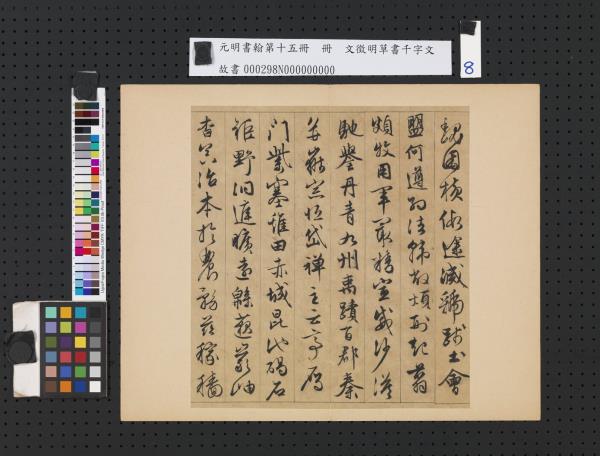 元明書翰第十五冊 冊 文徵明草書千字文
故書 000298N000000000
8
魏困横假途滅虢踐土會
盟何遵約法韓弊煩刑起翦
頗牧用軍最精宣威沙漠
馳譽丹青九州禹蹟百郡秦
并嶽宗恒岱禪主云亭雁
門紫塞雞田赤城昆池碣石
鉅野洞庭曠遠緜邈巖岫
杳冥治本於農務茲稼穡